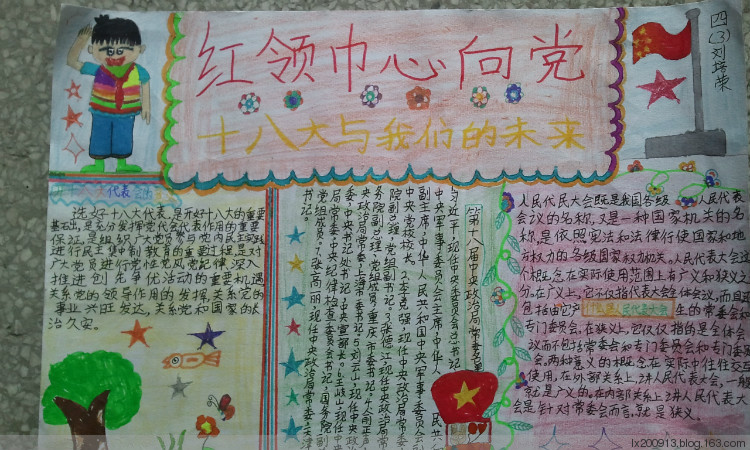 红领巾心向党
十八大与我们的未来
四(3)刘培荣
代表
选好十八大代表,是开好十八大的重要
基础,是充分发挥党代会代表作用的重要
保证,是组织广大党员参与党内民主实践
进行民主集中制教育的重要过程,是对
广大党员进行党性党风党纪律,深入
推进创先争优活动的重要机遇
关系党的领导作用的发挥,关系党的
事业兴旺发达,关系党和国家的长
治久安。
第十八届中央政治局常委名单
习近平,现任中央委员会总书记
中央军事委员会主席,中华人民共
副主席,中华人民共和国中央军事委员会
中央党校校长。2李克强,现任中央政治局常
院副总理,党组副书记。3张德江,现任中央政治局常委
务院副总理,党组成员,重庆市委书记。4俞正声,
中央政治局常委,上海市委书记。5刘云山,现任中央政治局
委,中央书记处书记,中央宣部长。6王岐山,现任中央政治
局常委,中央纪律检查委员会书记,国务院副
党组成员。7张高丽,现任中央政治局常委,天津
书记。
人民代民大会既是我国各级人民代表
会议的名称,又是一种国家机关的名
称,是依照宪法和法律行使国家和地
方权力的各级国家权力机关。人民代表大会这
个概念在实际使用范围上有广义和狭义之
分。在广义上,它不仅指代表大会全体会议,而且还
包括由它产生的常委会和
民代表大会
专门委员会。在狭义上,它仅仅指的是全体会
议而不包括常委会和专门委员会和专门委员
会,两种意义的概念在实际中往往交互
使用,在外部关系上,讲人民代表大会,一般
就是广义的,在内部关系上,讲人民代表大
会是针对常委会而言,就是狭义。
lx200913.blog.163.com